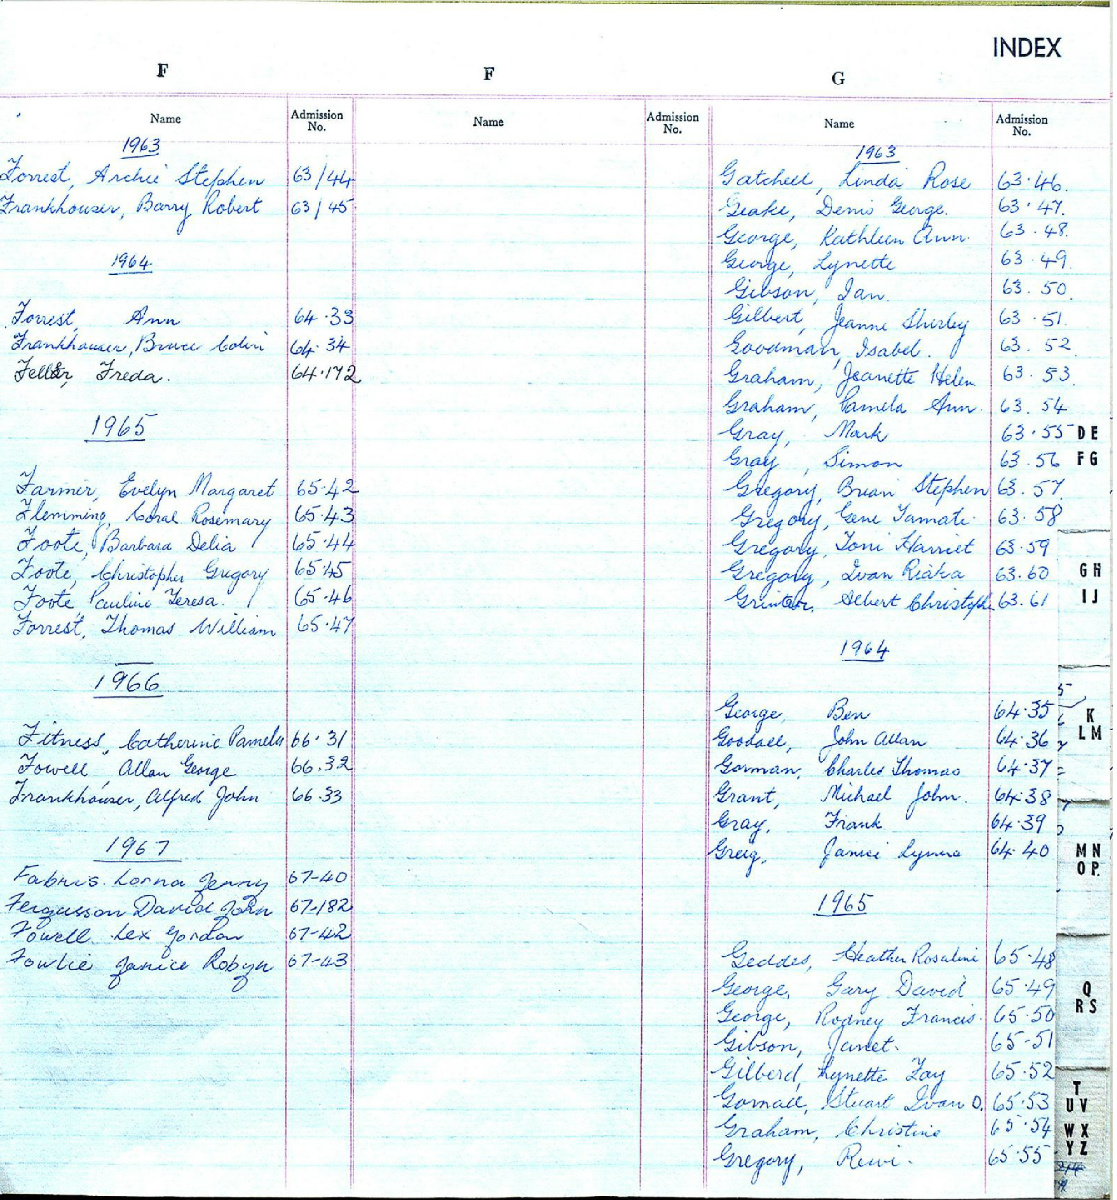 INDEX
F
Name
Admission No.
1963
Forrest, Archie Stephen 63/44
Frankhouser, Barry Robert 63/45
1964
Forrest, Ann 64.33
Frankhauser, Bruce Colin 64.34
Feller, Freda. 64.172
1965
Farmer, Evelyn Margaret 65.42
Flemming, Coral Rosemary 65.43
Foote, Barbara Delia 65.44
Foote, Christopher Gregory 65.45
Foote, Pauline Teresa. 65.46
Forrest, Thomas William 65.47
1966
Fitness, Catherine Pamela 66.31
Fowell, Allan George 66.32
Frankhauser, Alfred John 66.33
1967
Fabris. Lorna Jenny 67-40
Fergusson David John 67-182
Fowell Lex Gordon 67-42
Fowlie Janice Robyn 67-43
F
Name
Admission No.
G
Name
Admission No.
1963
Gatchell, Linda Rose 63.46.
Geake, Denis George. 63.47.
George, Kathleen Ann. 63.48.
George, Lynette 63.49.
Gibson, Ian. 63.50.
Gilbert, Jeanne Shirley 63.51.
Goodman, Isabel. 63.52.
Graham, Jeanette Helen 63.53.
Graham, Pamela Ann. 63.54
Gray, Mark 63.55
Gray, Simon 63.56
Gregory, Brian Stephen 63.57
Gregory, Gene 63.58
Gregory, Toni Harriet 63.59
Gregory, Ivan 63.60
Albert Christophe 63.61
1964
George, Ben 64.35
Goodall, John Allan 64.36
Gorman, Charles Thomas 64.37
Grant, Michael John. 64.38
Gray, Frank 64.39
Greig, Janice 64.40
1965
Geddes, Heather Rosaline 65.48
George, Gary David 65.49
George, Rodney Francis. 65.50
Gibson, Janet. 65-51
Gilberd, Lynette Fay 65.52
Stuart Ivan O. 65.53
Graham, Christine 65.54
Gregory, Rewi. 65.55
DE
FG
GH
IJ
K
LM
MN
OP.
Q
RS
T
UV
WX
YZ